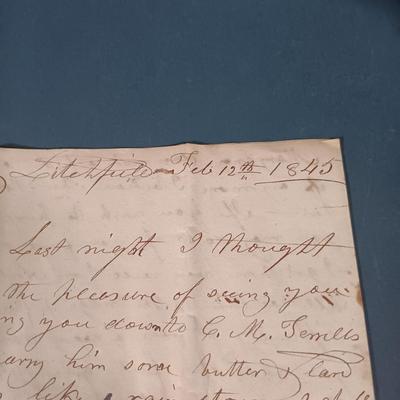 Litchfield Feb 12th 1845
Last night I thought
the pleasure of seeing you
ing you down to C. M. Terrills
carry him some butter & Lard
like a rain storm